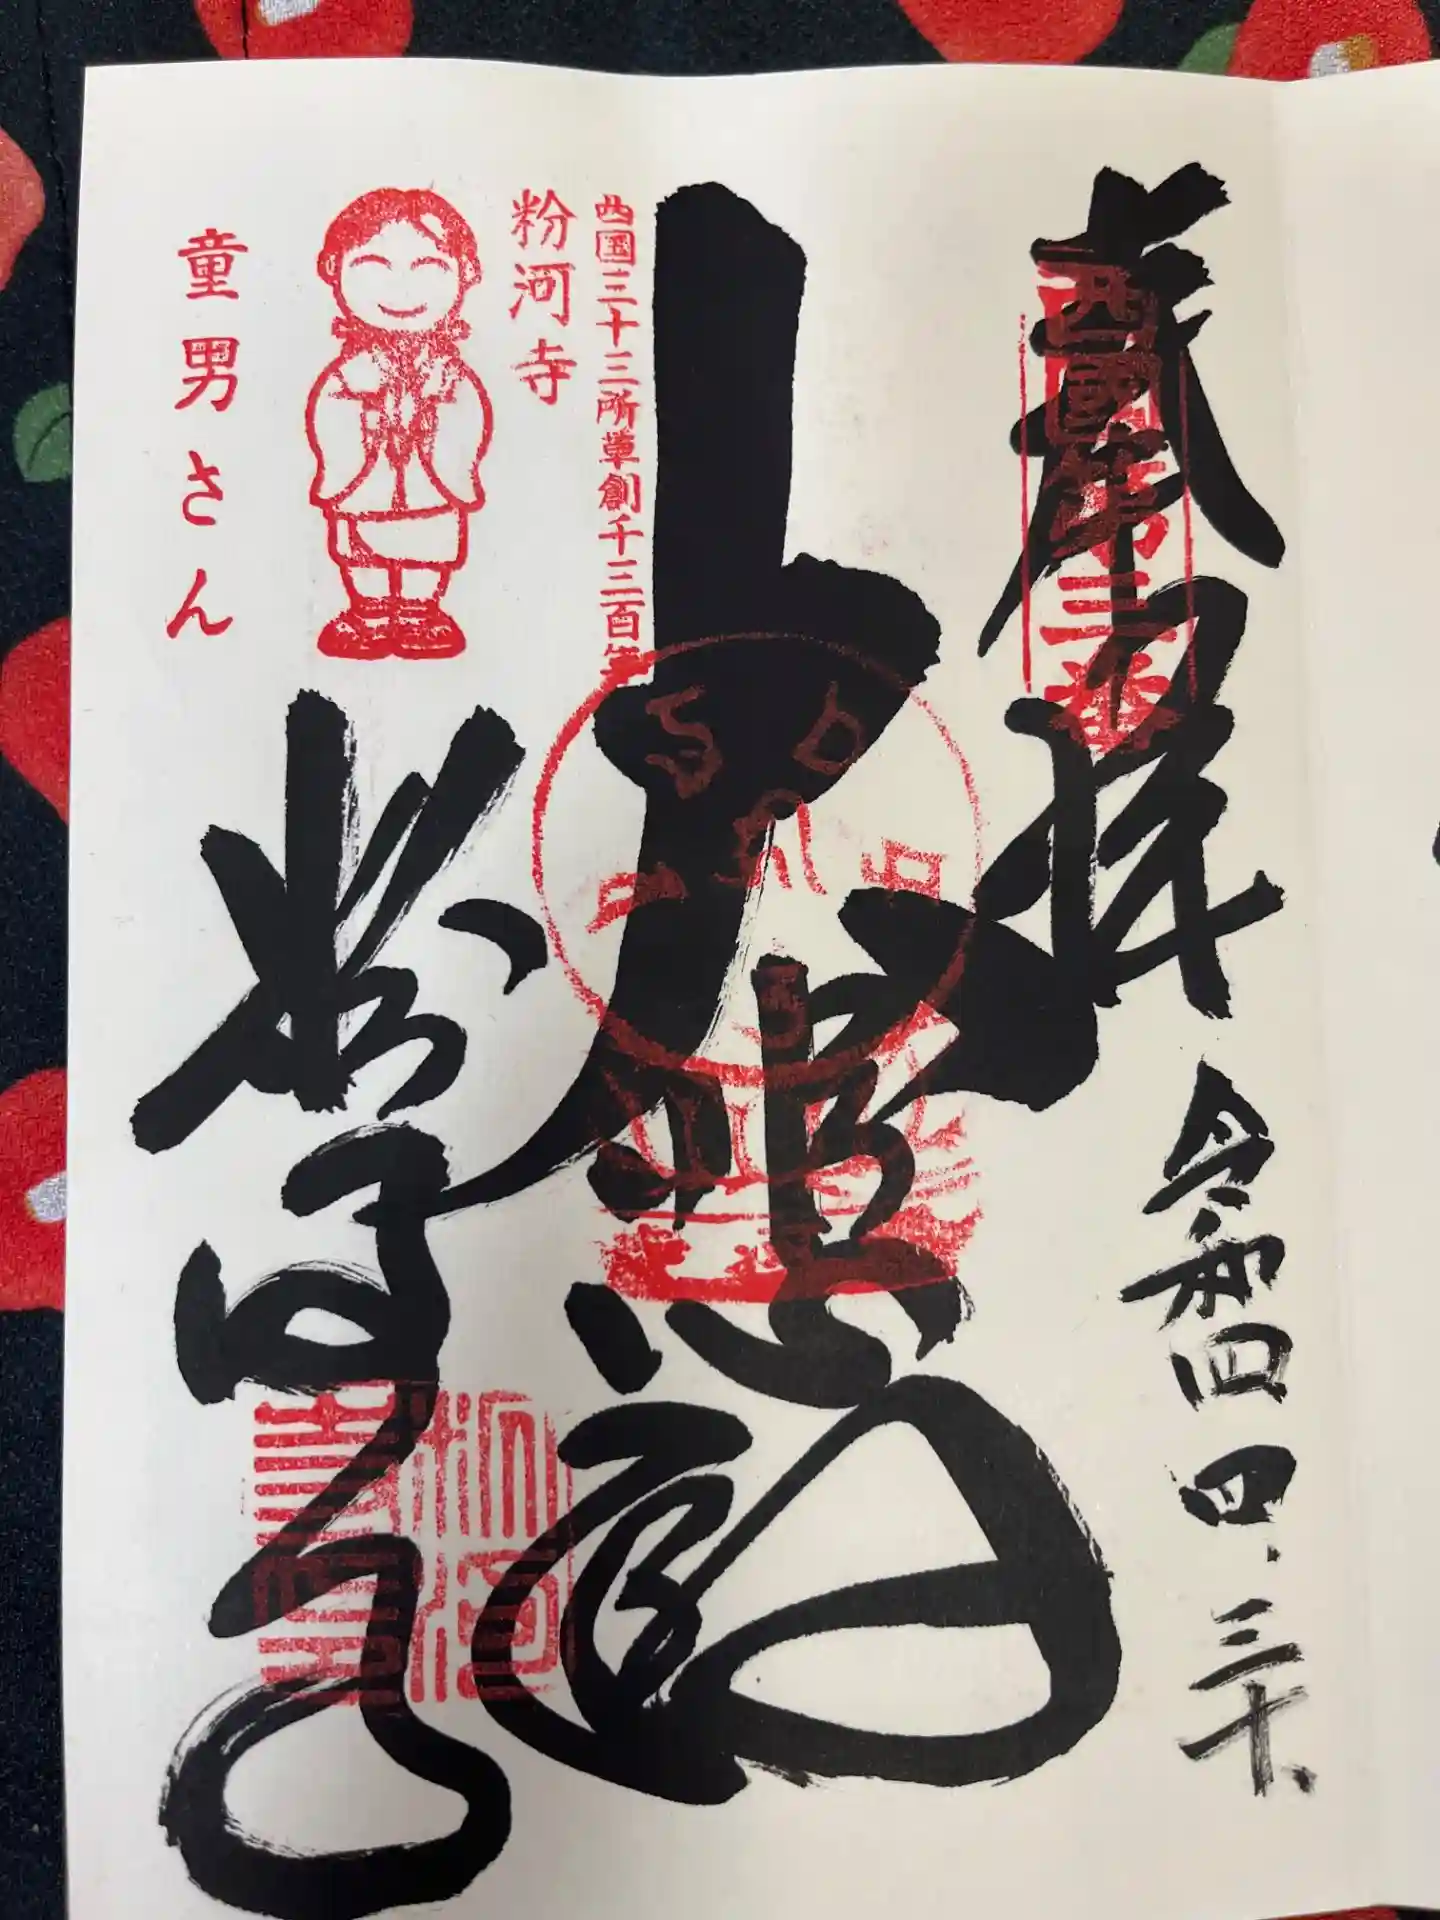 奉拝
西國第三番
令和四.四.三十、
大悲殿
西国三十三所草創千三百年
粉河寺
童男さん
粉河寺
粉河寺